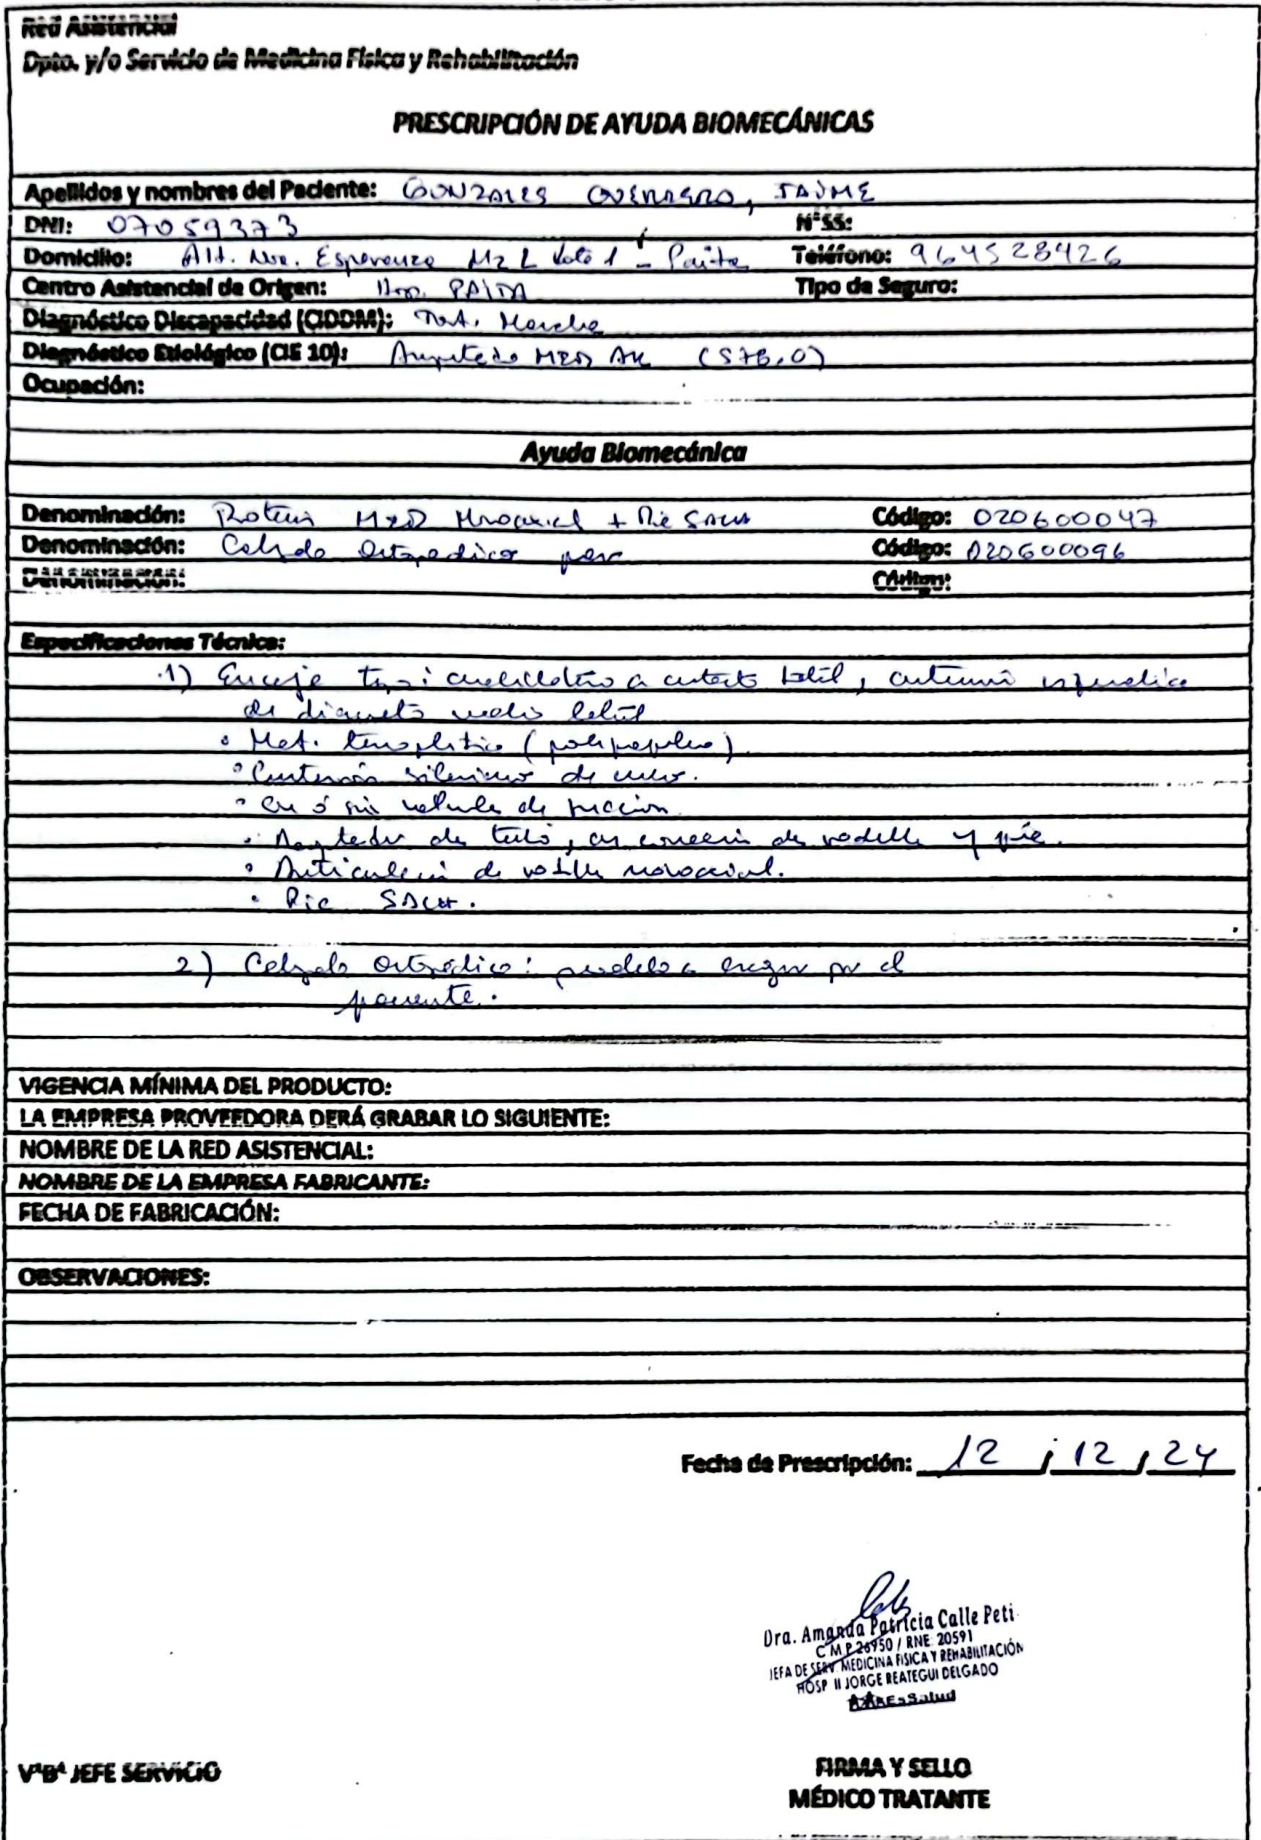 Red Asistencial
Dpto. y/o Servicio de Medicina Física y Rehabilitación
PRESCRIPCIÓN DE AYUDA BIOMECÁNICAS
Apellidos y nombres del Paciente: GONZALES GUERRERO, JAIME
DNI: 07059373 N°SS:
Domicilio: Esperanza Mz L Lote 1 - Paita Teléfono: 964528426
Centro Asistencial de Origen: Hosp. PAITA Tipo de Seguro:
Diagnóstico Discapacidad (CIDDM): Marcha
Diagnóstico Etiológico (CIE 10): Amputado (S78.0)
Ocupación:
Ayuda Biomecánica
Denominación: + Pie SACH Código: 020600047
Denominación: Calzado Ortopedico para Código: 020600096
Denominación: Código:
Especificaciones Técnica:
1) Encaje a contacto total,
de diametro medio
• Mat.
• de
• con ó sin valvula de succion
• de tubo, de rodilla y pie.
• Articulación de rodilla monoaxial.
• Pie SACH.
2) Calzado Ortopédico: modelo a escoger por el
paciente.
VIGENCIA MÍNIMA DEL PRODUCTO:
LA EMPRESA PROVEEDORA DERÁ GRABAR LO SIGUIENTE:
NOMBRE DE LA RED ASISTENCIAL:
NOMBRE DE LA EMPRESA FABRICANTE:
FECHA DE FABRICACIÓN:
OBSERVACIONES:
Fecha de Prescripción: 12 / 12 / 24
Dra. Amanda Patricia Calle Peti
C M P 26950 / RNE: 20591
JEFA DE SERV. MEDICINA FISICA Y REHABILITACIÓN
HOSP II JORGE REATEGUI DELGADO
EsSalud
V°B° JEFE SERVICIO
FIRMA Y SELLO
MÉDICO TRATANTE